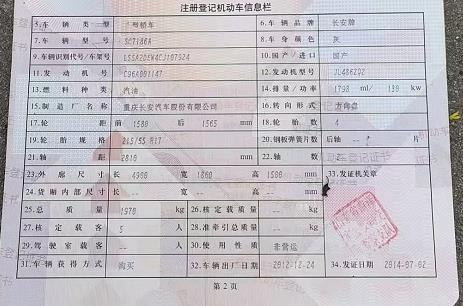 注册登记机动车信息栏
5.车辆类型 轿车 6.车辆品牌 长安牌
7.车辆型号 SC7186A 8.车身颜色 灰
9.车辆识别代号/车架号 10.国产/进口 国产
11.发动机号 12.发动机型号 JL486ZQ2
13.燃料种类 汽油 14.排量/功率 1798 ml/ 130 kw
15.制造厂名称 重庆长安汽车股份有限公司 16.转向形式 方向盘
17.轮距 前 1580 后 1565 mm 18.轮胎数 4
19.轮胎规格 215/55 R17 20.钢板弹簧片数 后轴 -- 片
21.轴距 2810 mm 22.轴数 2
23.外廓尺寸 长 4900 宽 1860 高 1500 mm 33.发证机关章
24.货厢内部尺寸 长 -- 宽 -- 高 -- mm
25.总质量 1970 kg 26.核定载质量 -- kg
27.核定载客 5 人 28.准牵引总质量 -- kg
29.驾驶室载客 -- 人 30.使用性质 非营运
31.车辆获得方式 购买 32.车辆出厂日期 2012-12-24 34.发证日期 2014-07-02
第2页